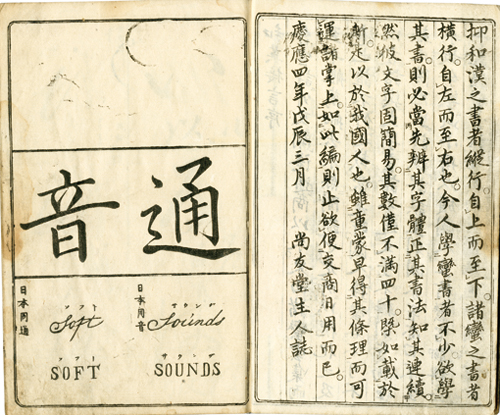 抑和漢之書者縱行自上而至下諸蠻之書者
橫行自左而至右也今人學蠻書者不少欲學
其書則必當先辨其字體正其書法知其連續
然彼文字固簡易其數僅不滿四十槩如載於
斯足以於我國人也雖童蒙早得其條理而可
運諸掌上如此編則止欲便交商日用而已
慶應四年戊辰三月 尚友堂主人誌
通音
日本用音
サウンヅ
Sounds
サウンヅ
SOUNDS
ソフト
Soft
ソフト
SOFT
日本用通